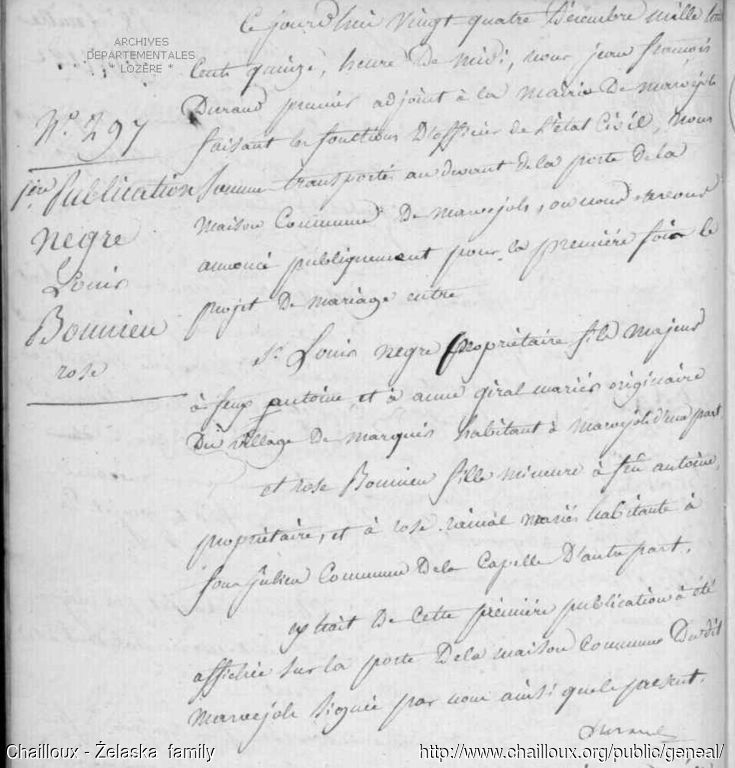 ARCHIVES
DÉPARTEMENTALES
* LOZÈRE *
N.º 297
1ère Publication
negre
Louis
Bonnieu
rose
Ce jourd'hui vingt quatre Décembre mille huit
cents quinze, heure de midi, nous jean françois
Durand premier adjoint à la mairie de marvejols
faisant les fonctions D'officier de l'état Civil, nous
somme transporté au devant de la porte de la
maison Commune De marvejols, ou nous avons
annoncé publiquement pour la première fois le
projet De mariage entre
Sr. Louis negre propriétaire fils majeur
à feux antoine et à anne giral mariés originaire
Du village De marquis habitant à marvejols d'una part
et rose Bonnieu fille mineure à feu antoine,
propriétaire, et à rose mariés habitante à
julien Commune Dela Capelle D'autre part,
extrait De Cette première publication à été
affichée sur la porte Dela maison Commune Dudit
marvejols signée par nous ainsi que le présent.
Durand
Chailloux - Żelaska family
http://www.chailloux.org/public/geneal/